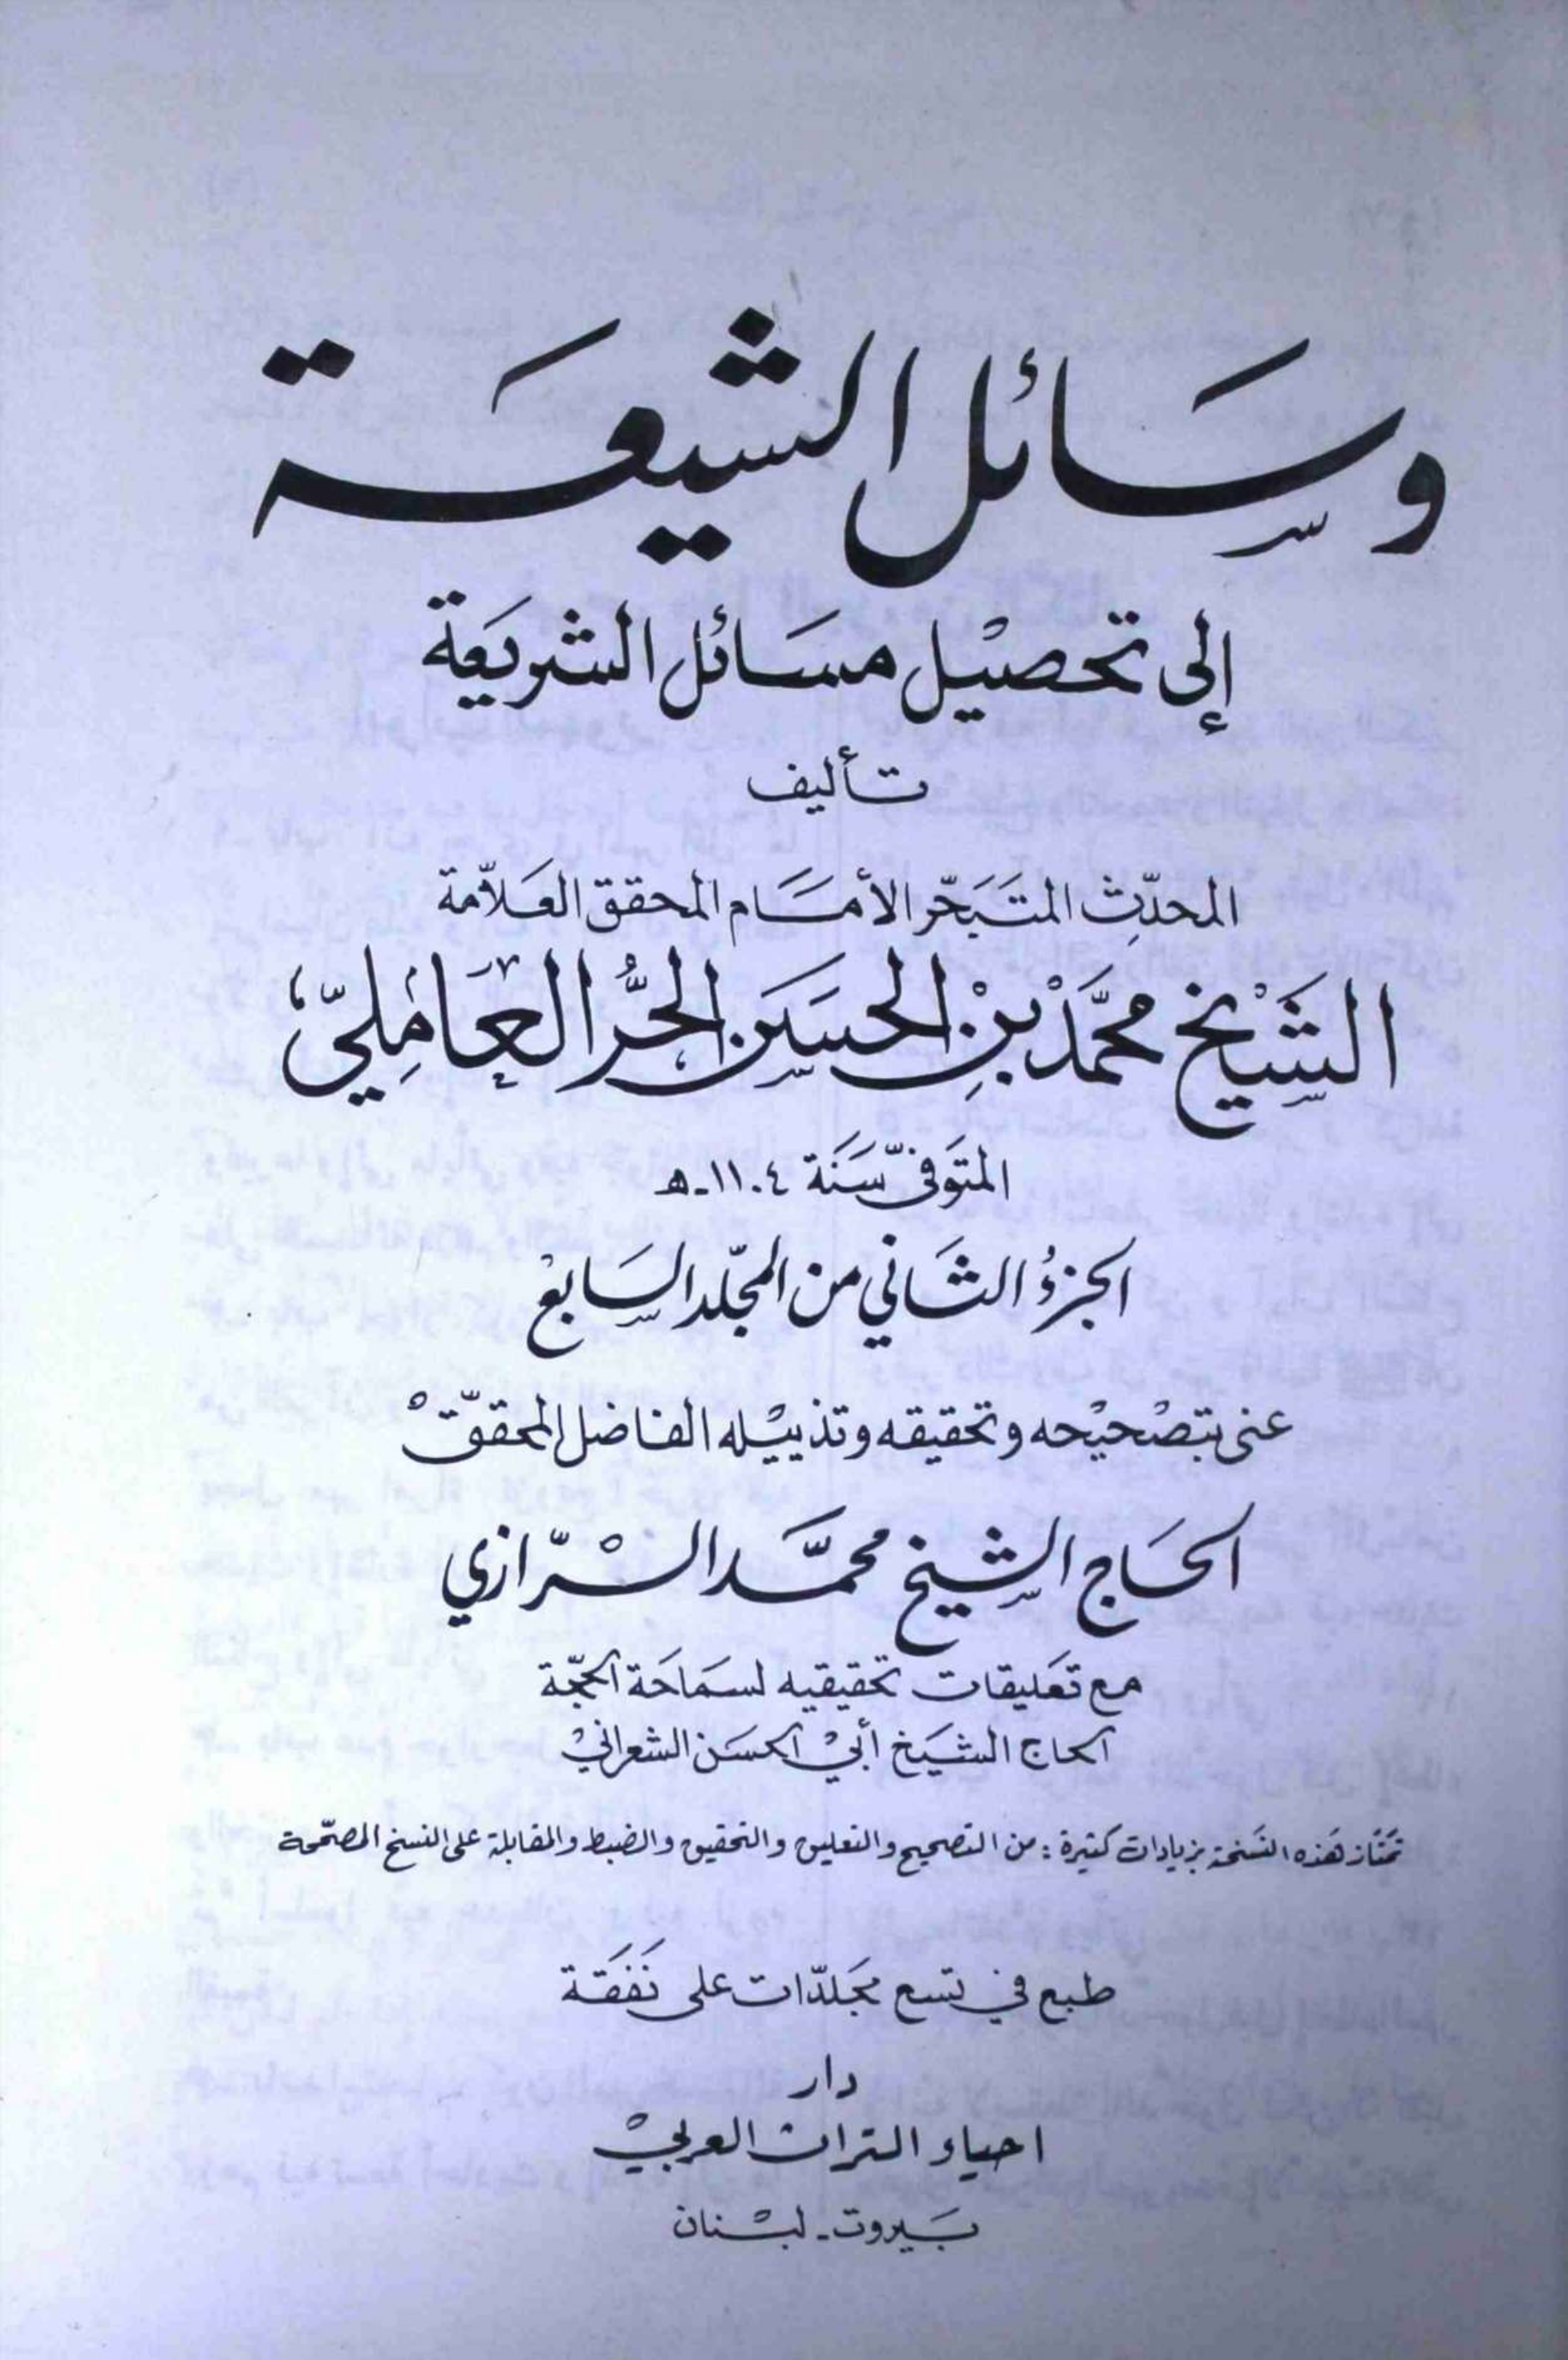 وسائل الشيعة
إلى تحصيل مسائل الشريعة
تأليف
المحدّث المتبحّر الأمام المحقق العلاّمة
الشيخ محمّد بن الحسن الحرّ العامليّ
المتوفّى سنة ١١٠٤ ـه
الجزء الثاني من المجلّد السابع
عنى بتصحيحه وتحقيقه وتذييله الفاضل المحقّق
الحاج الشيخ محمّد الرّازي
مع تعليقات تحقيقيه لسماحة الحجّة
الحاج الشيخ أبي الحسن الشعراني
تمتاز هذه النسخة بزيادات كثيرة : من التصحيح والتعليق والتحقيق والضبط والمقابلة على النسخ المصحّحة
طبع في تسع مجلدّات على نفقة
دار
احياء التراث العربي
بيروت ـ لبنان